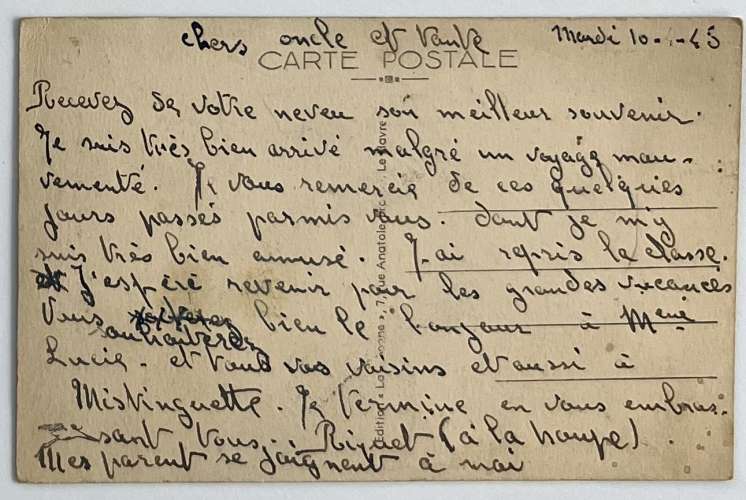 chers oncle et tante
Mardi 10 - 4 - 45
CARTE POSTALE
Recevez de votre neveu son meilleur souvenir.
Je suis très bien arrivé malgré un voyage mou-
vementé. Je vous remercie de ces quelques
jours passés parmis vous. dont je m'y
suis très bien amusé. J'ai repris la classe.
J'espéré revenir par les grandes vacances
Vous souhaiterez bien le bonjour à Meme
Lucie. et tous vos voisins et aussi à
Mistinguette. Je termine en vous embras-
sant tous. Riquet (à la houpe).
Mes parent se joignent à moi
Edition "La ", 7, rue Anatole- - Le Havre